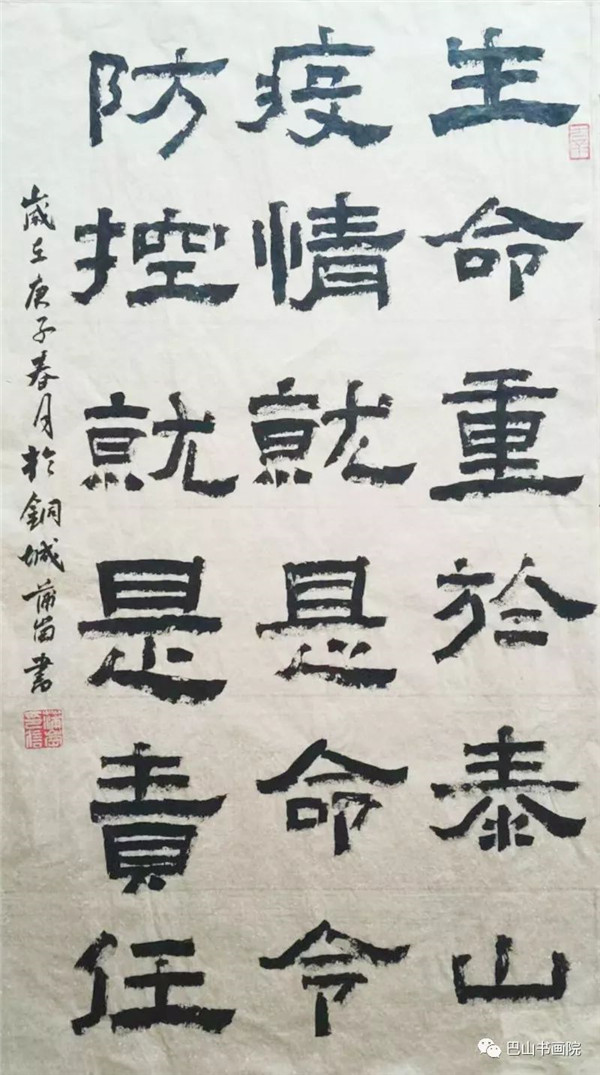 生命重於泰山
疫情就是命令
防控就是責任
歲在庚子春月於銅城蒲茁書
巴山书画院